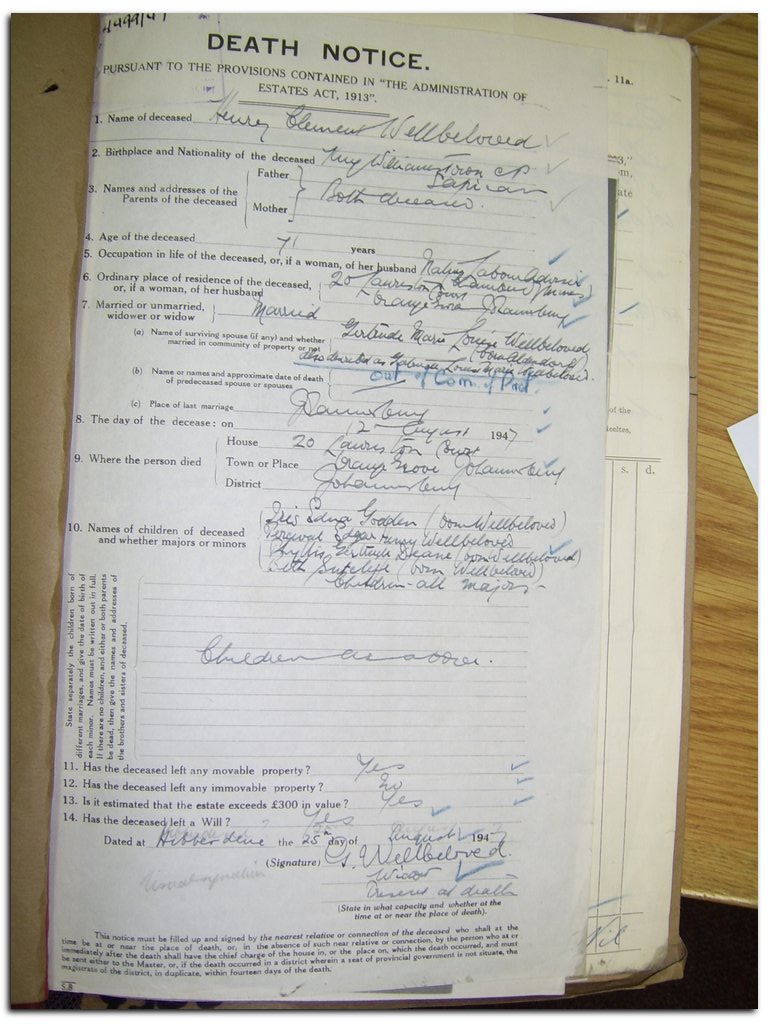 DEATH NOTICE.
PURSUANT TO THE PROVISIONS CONTAINED IN "THE ADMINISTRATION OF
ESTATES ACT, 1913".
1. Name of deceased Henry Clement Wellbeloved
2. Birthplace and Nationality of the deceased King Williams Town CP
3. Names and addresses of the Parents of the deceased
Father
Mother
Both deceased.
4. Age of the deceased 71 years
5. Occupation in life of the deceased, or, if a woman, of her husband Native Labour Adviser
Chamber of Mines
6. Ordinary place of residence of the deceased, or, if a woman, of her husband 20 Lauriston Court
Orange Grove Johannesburg
7. Married or unmarried, widower or widow Married
(a) Name of surviving spouse (if any) and whether married in community of property or not Gertrude Marie Louise Wellbeloved
also described as Louise Marie Wellbeloved.
out of Com. of Prop.
(b) Name or names and approximate date of death of predeceased spouse or spouses
(c) Place of last marriage Johannesburg
8. The day of the decease: on 12 August 1947
9. Where the person died
House 20 Lauriston Court
Town or Place Orange Grove Johannesburg
District Johannesburg
10. Names of children of deceased and whether majors or minors
Iris Edna Godden (born Wellbeloved)
Percival Edgar Henry Wellbeloved
Phyllis Gertrude Deane (born Wellbeloved)
Beth Sutcliffe (born Wellbeloved)
Children all majors
State separately the children born of different marriages, and give the date of birth of each minor. Names must be written out in full.
If there are no children, and either or both parents be dead, then give the names and addresses of the brothers and sisters of deceased.
Children as above.
11. Has the deceased left any movable property? Yes
12. Has the deceased left any immovable property? No
13. Is it estimated that the estate exceeds £300 in value? Yes
14. Has the deceased left a Will? Yes
Dated at Hibberdene the 25 day of August 1947
(Signature) G. Wellbeloved.
Widow
Present at death
Usual signature
(State in what capacity and whether at the
time at or near the place of death).
This notice must be filled up and signed by the nearest relative or connection of the deceased who shall at the
time be at or near the place of death, or, in the absence of such near relative or connection, by the person who at or
immediately after the death shall have the chief charge of the house in, or the place on, which the death occurred, and must
be sent either to the Master, or, if the death occurred in a district wherein a seat of provincial government is not situate, the
magistrate of the district, in duplicate, within fourteen days of the death.
S.B
11a.
of the
s. d.
Nil